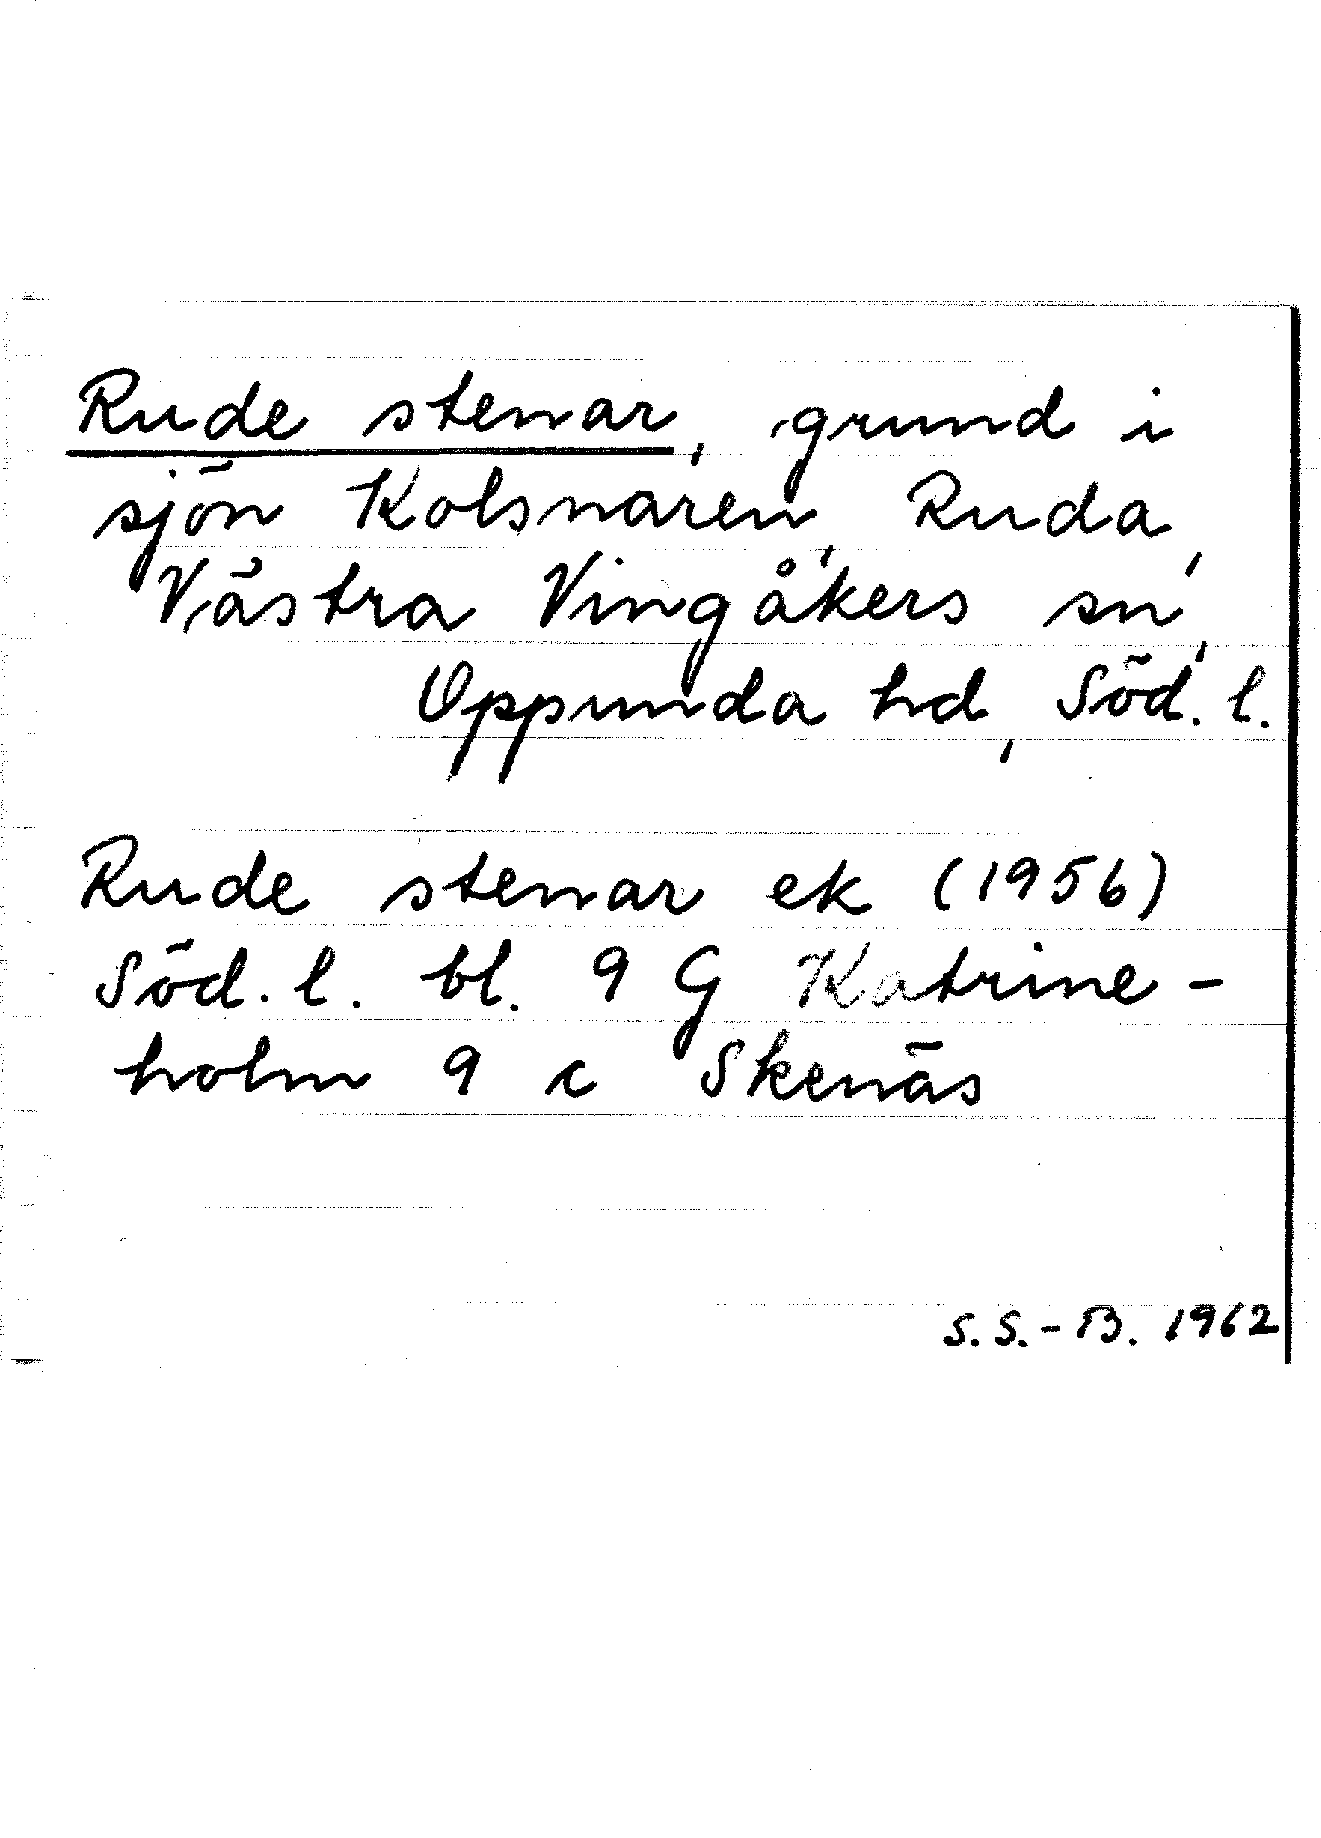 Rude stenar, grund i
sjön Kolsnaren, Ruda,
Västra Vingåkers sn,
Oppunda hd, Söd. l.
Rude stenar ek (1956)
Söd. l. bl. 9 G Katrine-
holm 9 c Skenäs
S. S.-B. 1962